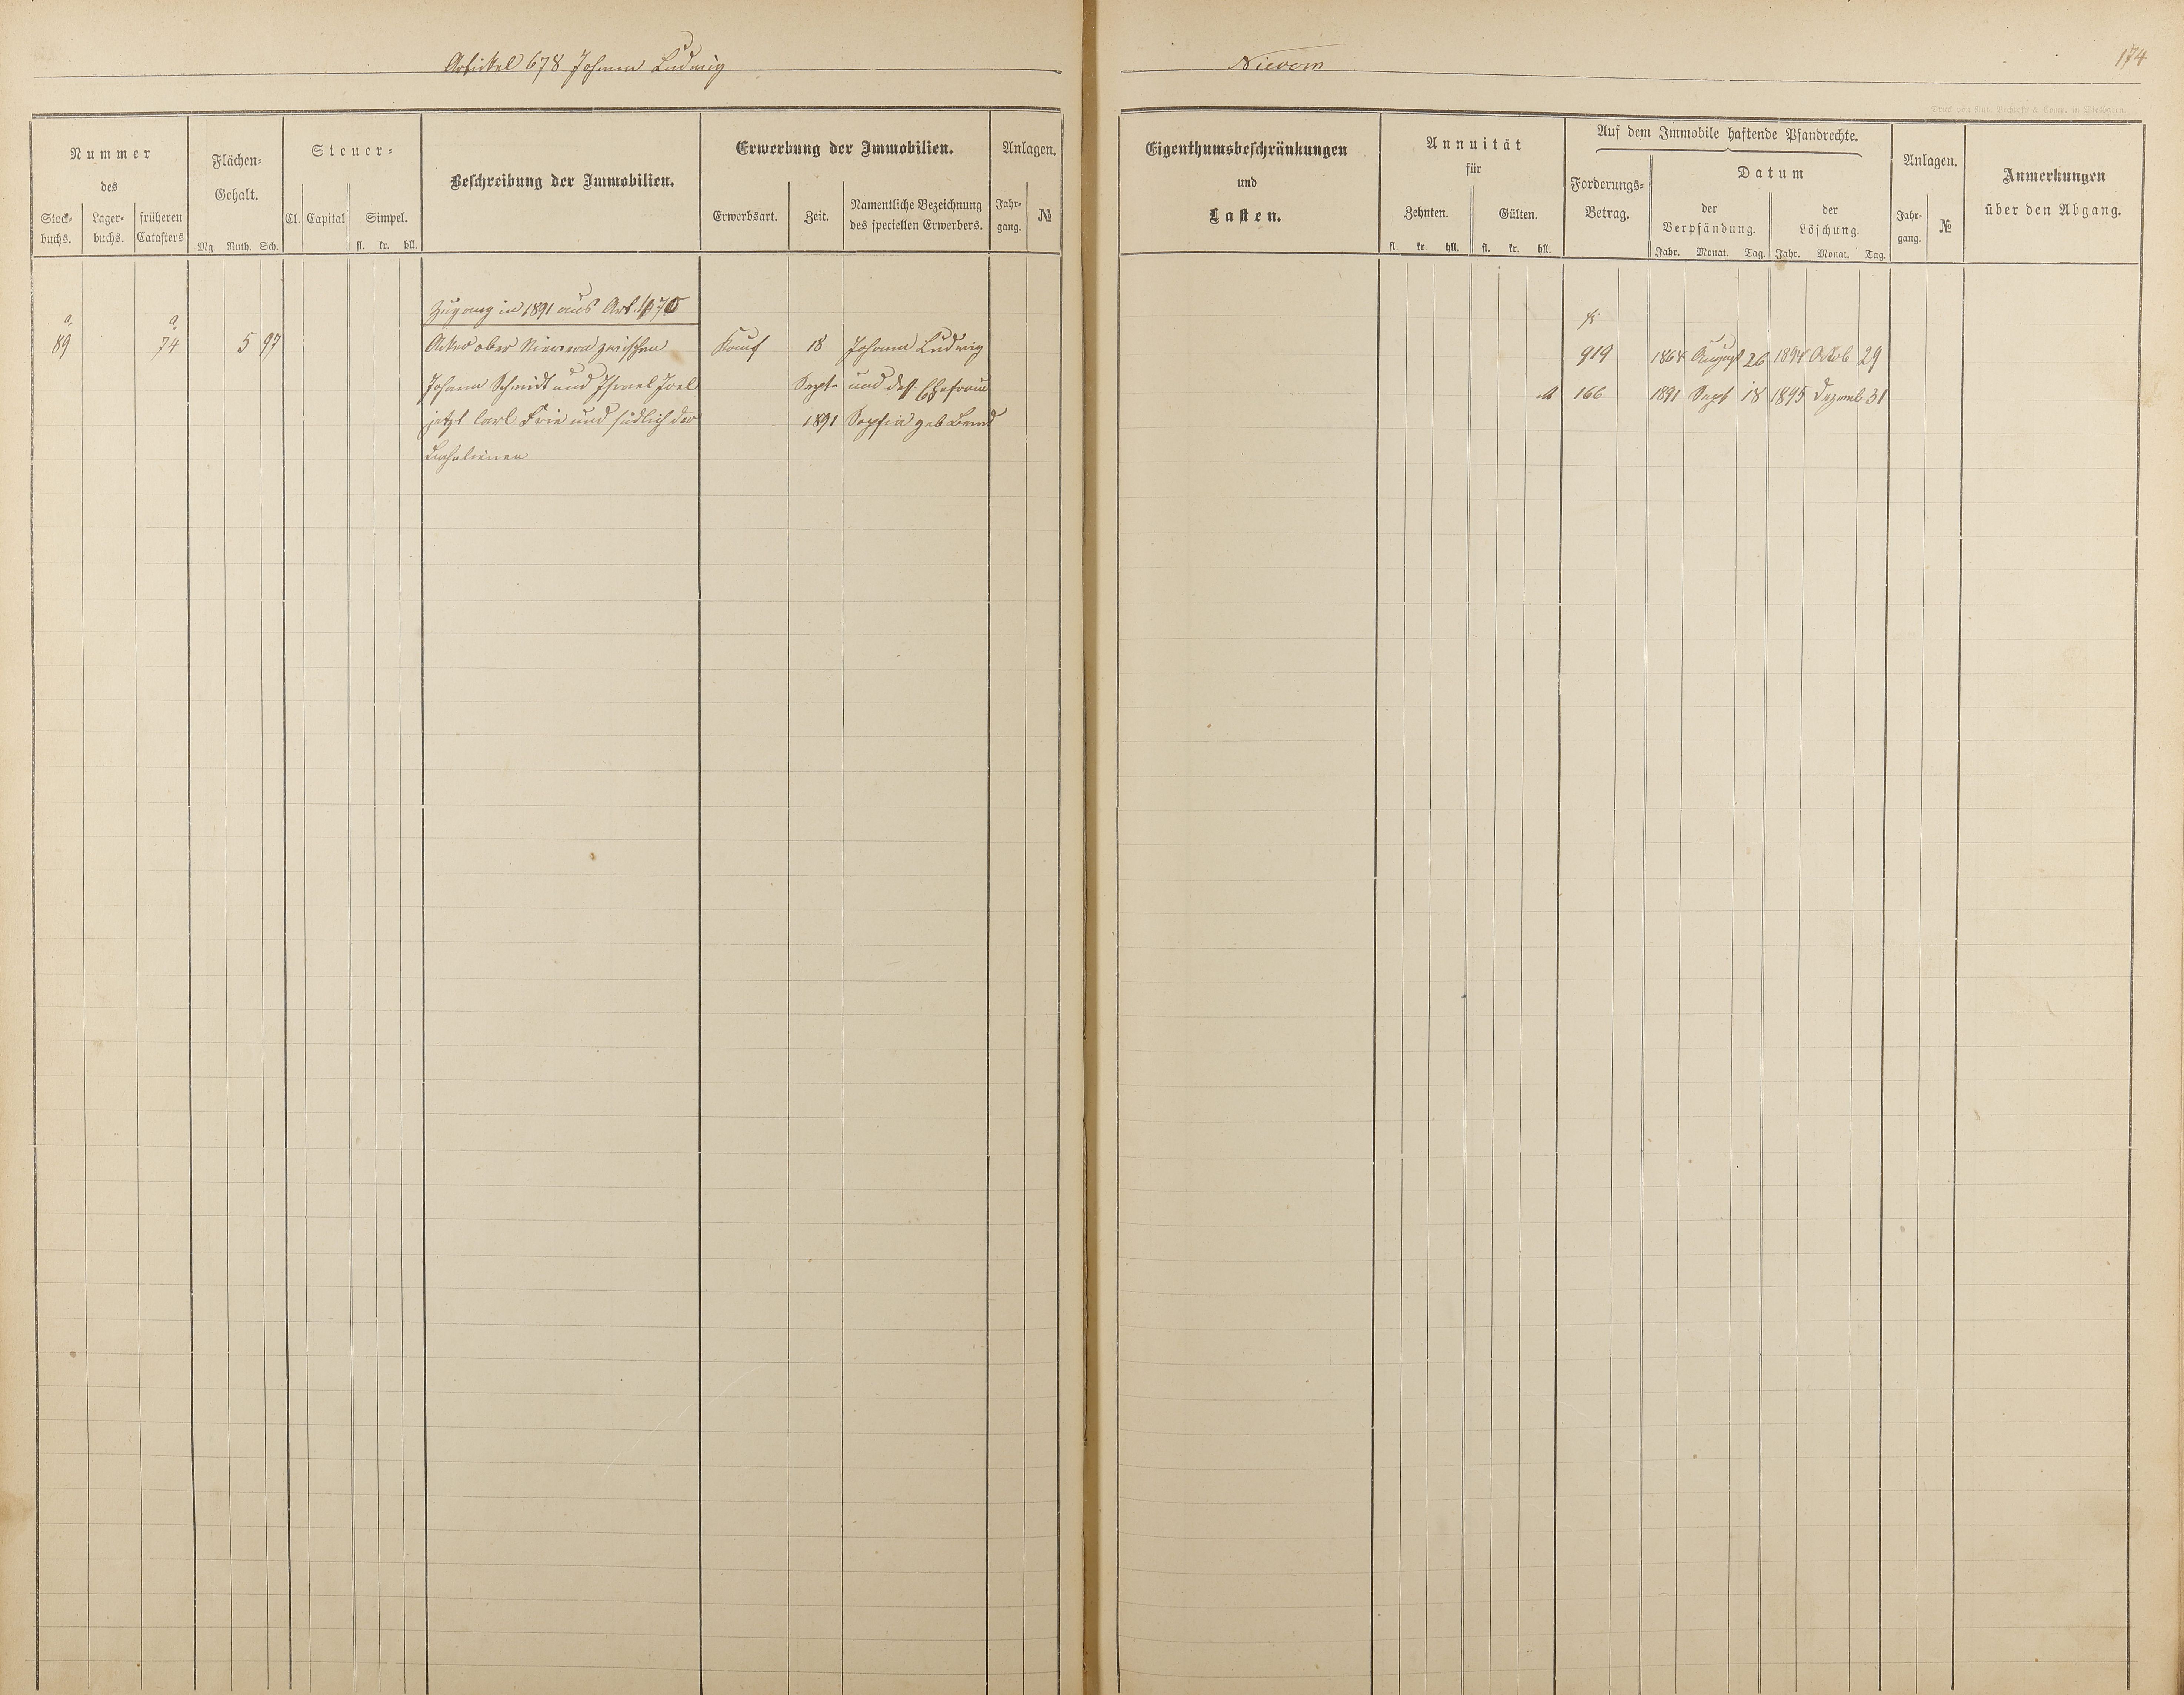 Artickel 678 Johann Ludwig
Nievern
174
Nummer
des
Stock-
buchs.
Lager-
buchs.
früheren
Catasters
Flächen-
Gehalt.
Mg. Ruth. Sch.
Steuer-
Cl. Capital Simpel.
fl. kr. hll.
Beschreibung der Immobilien.
Erwerbung der Immobilien.
Erwerbsart. Zeit.
Namentliche Bezeichnung
des speciellen Erwerbers.
Anlagen.
Jahr-
gang.
№
Eigenthumsbeschränkungen
und
Lasten.
Annuität
für
Zehnten. Gülten.
fl. kr. hll. fl. kr. hll.
Auf dem Immobile haftende Pfandrechte.
Forderungs-
Betrag.
Datum
der
Verpfändung.
Jahr. Monat. Tag.
der
Löschung.
Jahr. Monat. Tag.
Anlagen.
Jahr-
gang.
№
Anmerkungen
über den Abgang.
Zugang in 1891 aus Art.
a a
89 74 5 97 Acker ober Nievern zwischen Kauf 18 Johann Ludwig
Johann Schmidt und Israel Joel Sept. und dess. Ehefrau
jetzt Carl Frie und südlich der 1891 Sophia geb
fl.
919 1864 August 26 1894 Octob 29
M 166 1891 Sept 18 1895 Dezemb 31